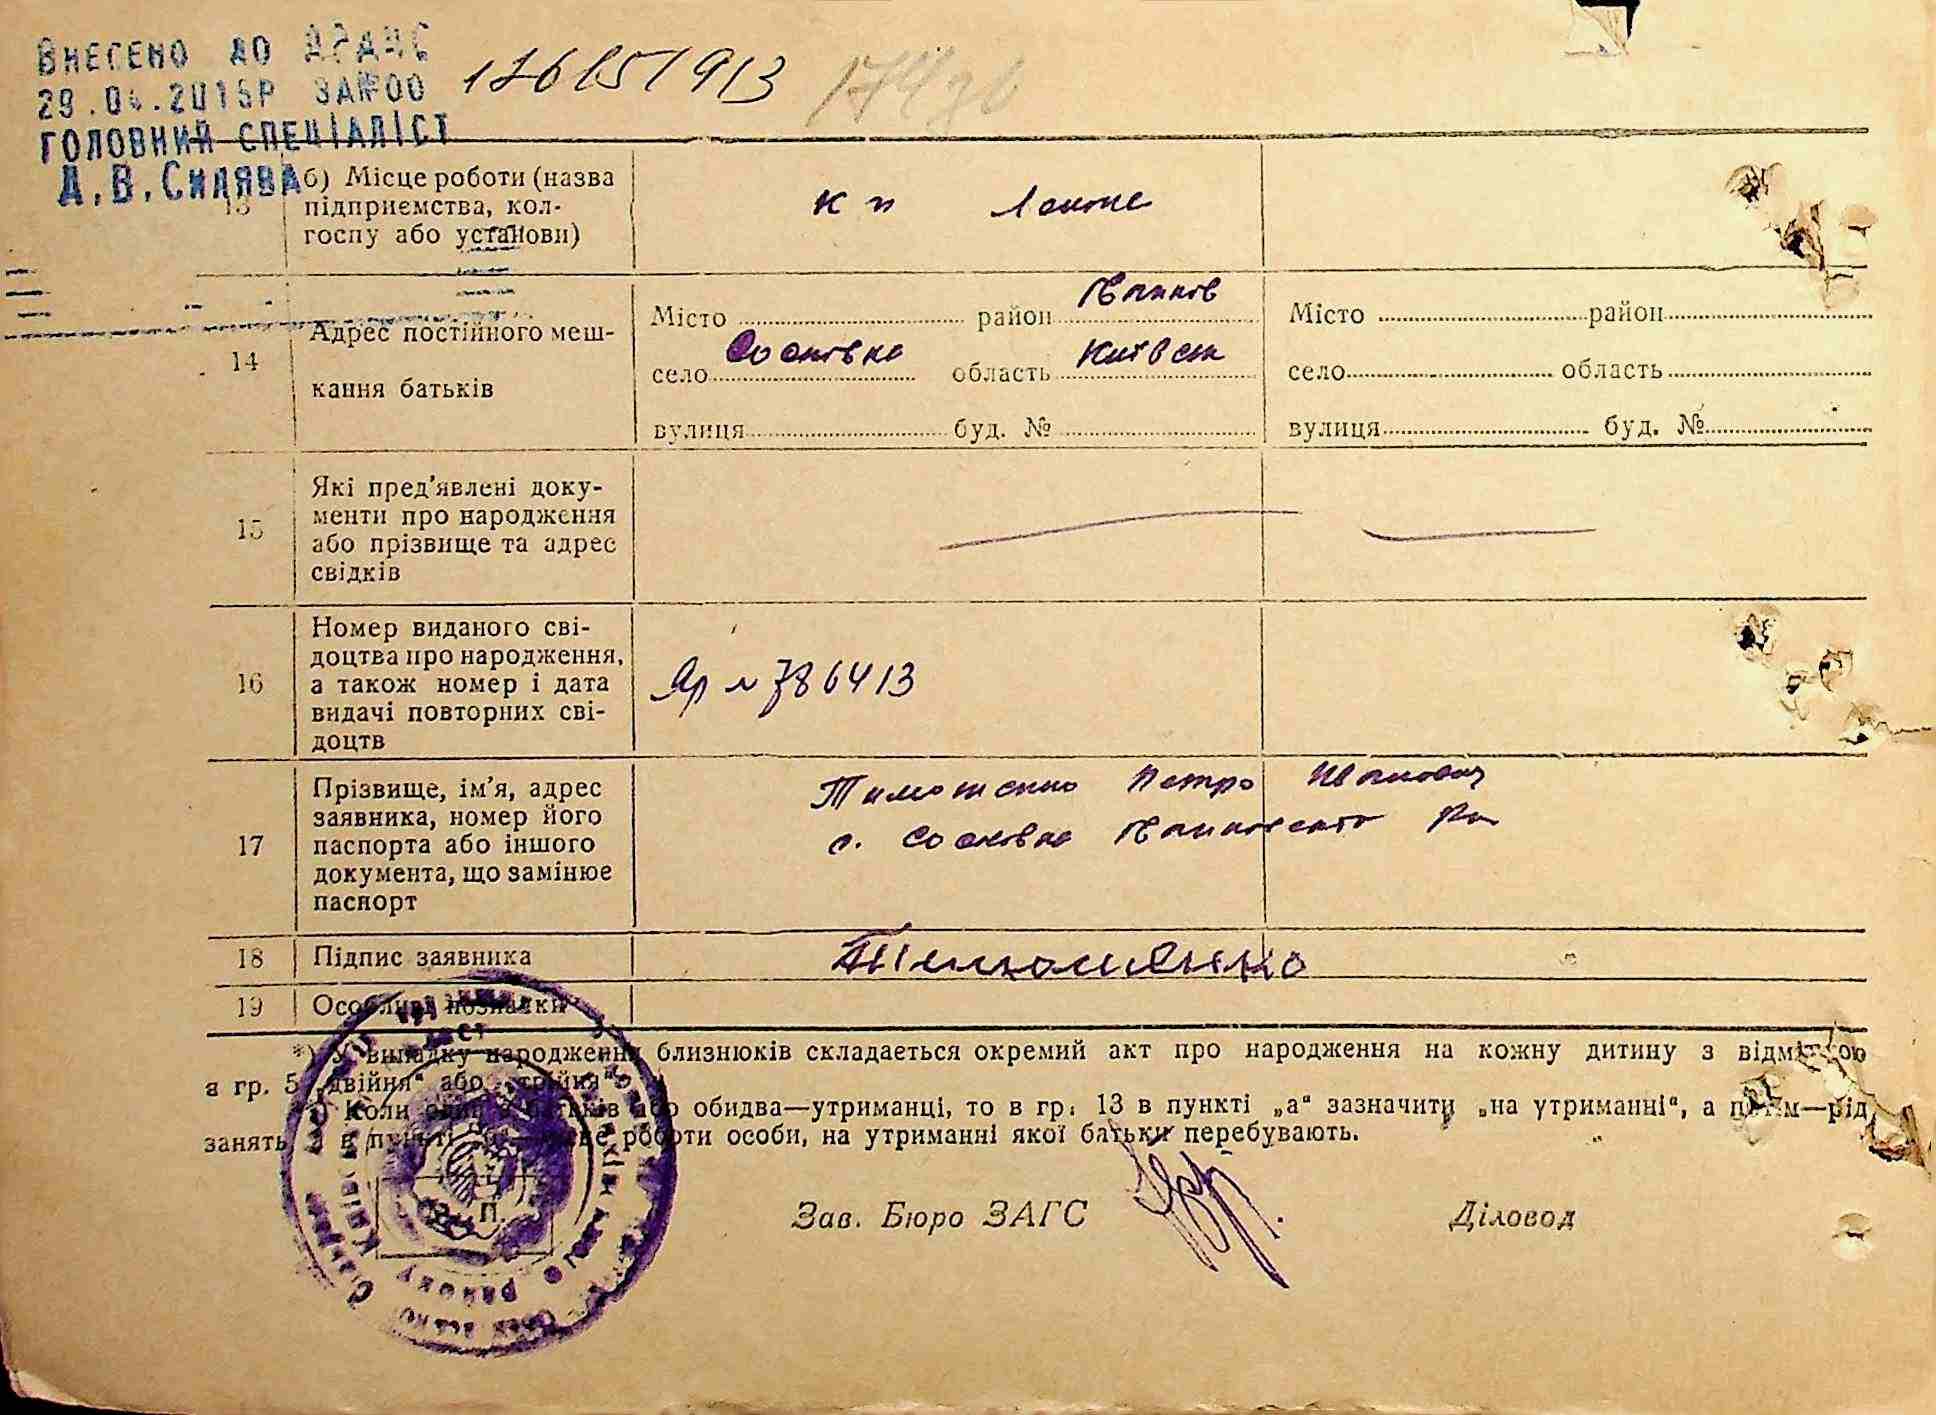 ВНЕСЕНО ДО ДРАЦС
29.04.2015Р ЗА№00 176151913
ГОЛОВНИЙ СПЕЦІАЛІСТ
Д.В.СИЛЯВА
13 б) Місце роботи (назва
підприємства, кол-
госпу або установи)
к п
14 Адрес постійного меш-
кання батьків
Місто район Іванків
село Соснівка область Київськ
вулиця буд. №
Місто район
село область
вулиця буд. №
15 Які пред'явлені доку-
менти про народження
або прізвище та адрес
свідків
16 Номер виданого сві-
доцтва про народження,
а також номер і дата
видачі повторних сві-
доцтв
Яр № 786413
17 Прізвище, ім'я, адрес
заявника, номер його
паспорта або іншого
документа, що замінює
паспорт
Тимошенко Петро Іванович
с. Соснівка Іванковського р-н
18 Підпис заявника Тимошенко
19 Особливі познадки
*) У випадку народження близнюків складається окремий акт про народження на кожну дитину з відміткою
в гр. 5 „двійня“ або „трійня“.
Коли один з батьків або обидва—утриманці, то в гр. 13 в пункті „а“ зазначити „на утриманні“, а потім—рід
занять, а в пункті роботи особи, на утриманні якої батьки перебувають.
Зав. Бюро ЗАГС Діловод
П.